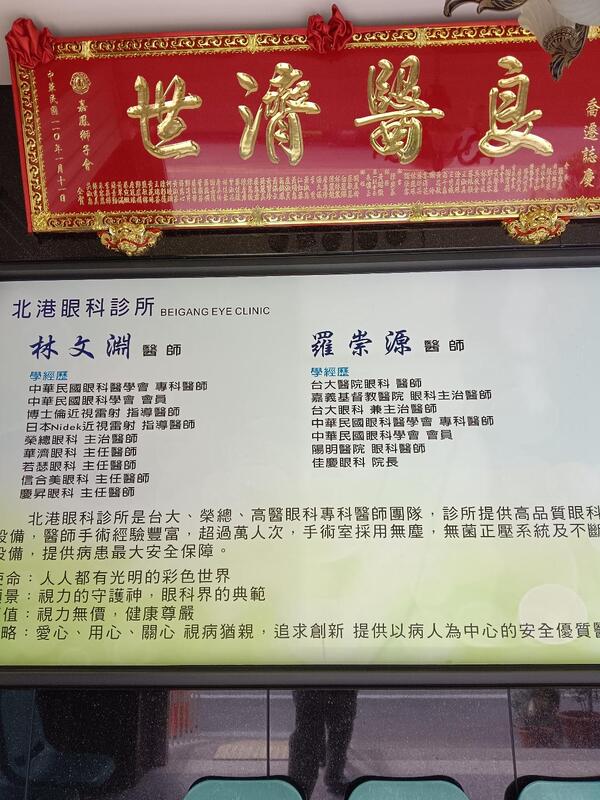 喬遷誌慶
良醫濟世
嘉鳳獅子會 仝賀
中華民國一一〇年一月十一日
北港眼科診所 BEIGANG EYE CLINIC
林文淵 醫師
學經歷
中華民國眼科醫學會 專科醫師
中華民國眼科學會 會員
博士倫近視雷射 指導醫師
日本Nidek近視雷射 指導醫師
榮總眼科 主治醫師
華濟眼科 主任醫師
若瑟眼科 主任醫師
信合美眼科 主任醫師
慶昇眼科 主任醫師
羅崇源 醫師
學經歷
台大醫院眼科 醫師
嘉義基督教醫院 眼科主治醫師
台大眼科 兼主治醫師
中華民國眼科醫學會 專科醫師
中華民國眼科學會 會員
陽明醫院 眼科醫師
佳慶眼科 院長
北港眼科診所是台大、榮總、高醫眼科專科醫師團隊，診所提供高品質眼科
設備，醫師手術經驗豐富，超過萬人次，手術室採用無塵，無菌正壓系統及不斷
設備，提供病患最大安全保障。
使命：人人都有光明的彩色世界
願景：視力的守護神，眼科界的典範
值：視力無價，健康尊嚴
略：愛心、用心、關心 視病猶親，追求創新 提供以病人為中心的安全優質醫